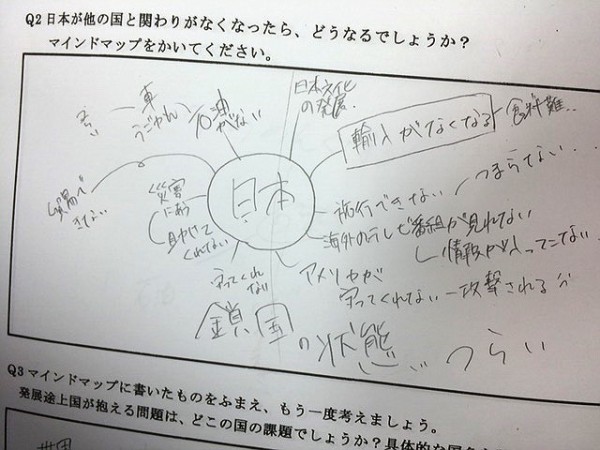 Q2 日本が他の国と関わりがなくなったら、どうなるでしょうか？
マインドマップをかいてください。
日本文化
の発展
輸入がなくなる
食料難..
石油
がない
車
日本
災害
にあう
助けて
くれない
旅行できない
つまらない..
海外のテレビ番組が見れない
情報が入ってこない
アメリカが
守ってくれない
攻撃される
守ってくれ
ない
貿易が
できない
鎖国の状態... つらい
Q3 マインドマップに書いたものをふまえ、もう一度考えましょう。
発展途上国が抱える問題は、どこの国の課題でしょうか？具体的な国名